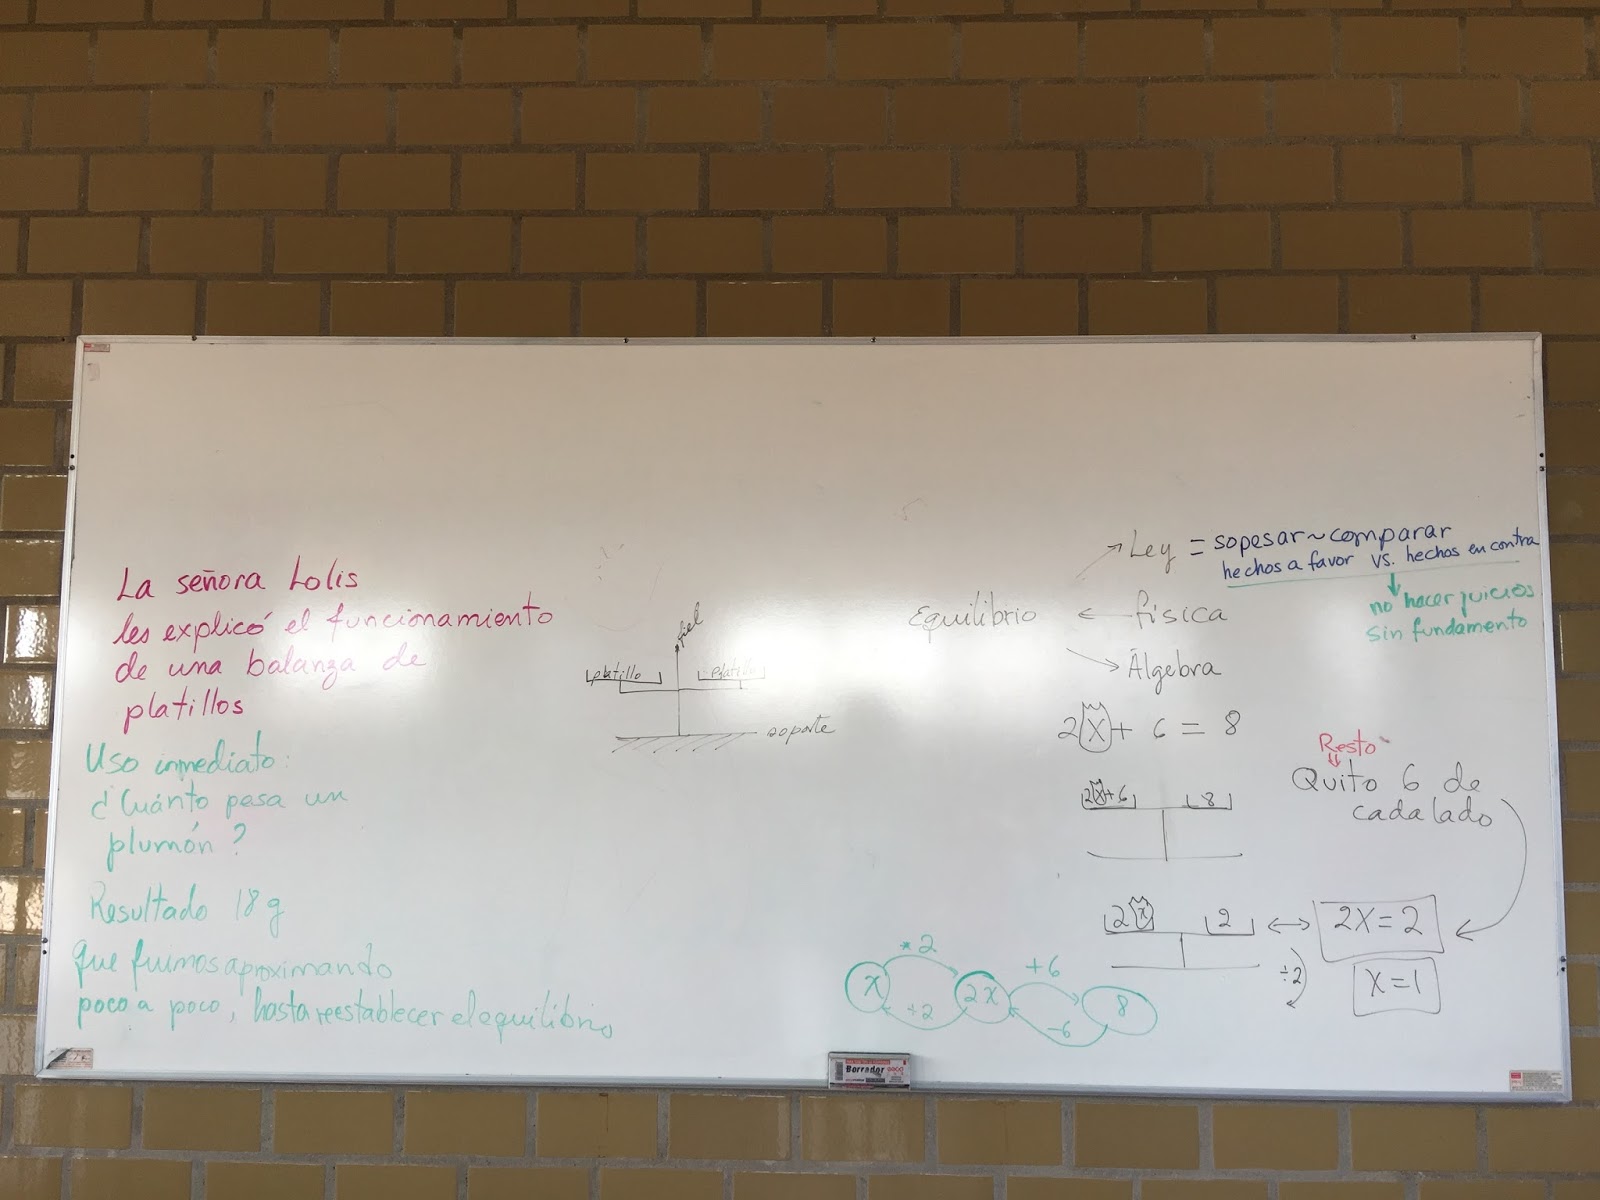 La señora Lolis
les explicó el funcionamiento
de una balanza de
platillos
Uso inmediato:
¿Cuánto pesa un
plumón?
Resultado 18 g
que fuimos aproximando
poco a poco, hasta reestablecer el equilibrio
fiel
platillo
platillo
soporte
Equilibrio
Ley = sopesar ~ comparar
hechos a favor vs. hechos en contra
no hacer juicios
sin fundamento
física
Álgebra
2x + 6 = 8
Resto
Quito 6 de
cada lado
2x+6
8
2x
2
2x=2
÷2
x=1
*2
x
2x
÷2
+6
8
-6
Borrador